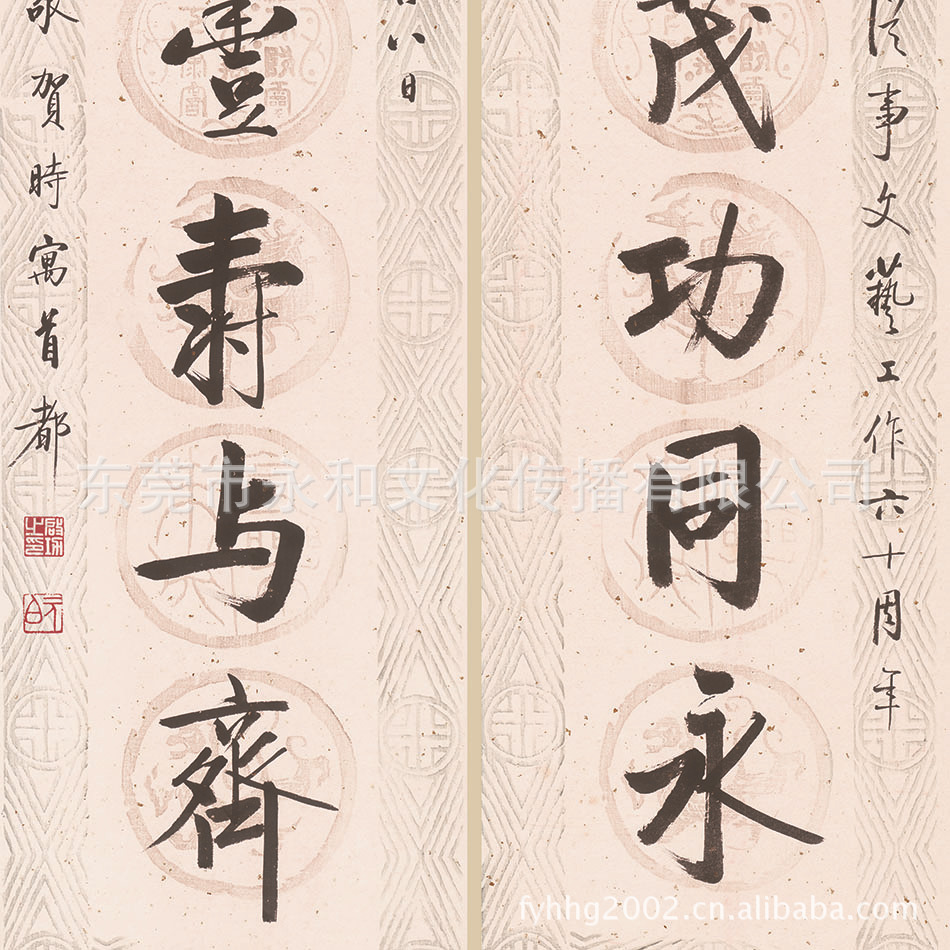 從事文藝工作六十周年
茂功同永
八日
壽与齊
敬賀時寓首都
啟功之印
元白
东莞市永和文化传播有限公司
fyhhg2002.cn.alibaba.com